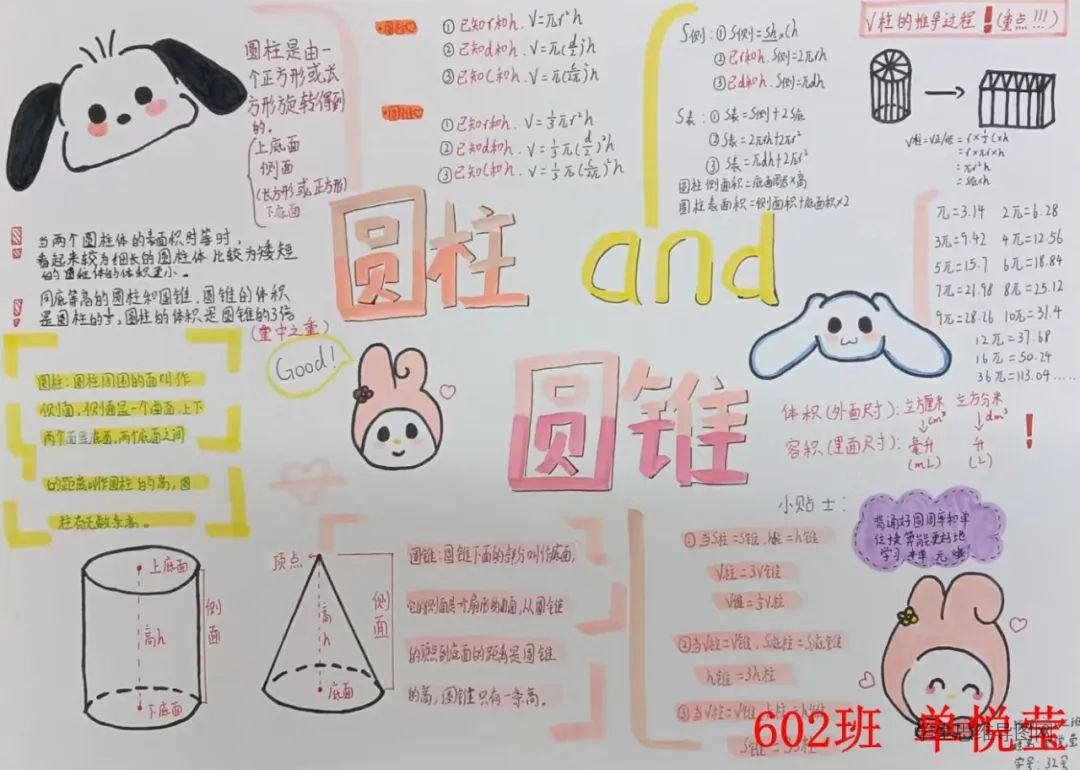 圆柱是由一
个正方形或长
方形旋转得到
的。
上底面
侧面
(长方形或正方形)
下底面
圆柱
①已知r和h. V=πr²h
②已知d和h. V=π(d/2)²h
③已知C和h. V=π(C/2π)²h
圆锥
①已知r和h. V=⅓πr²h
②已知d和h. V=⅓π(d/2)²h
③已知C和h. V=⅓π(C/2π)²h
S侧:①S侧=Ch
②已知r和h. S侧=2πrh
③已知d和h. S侧=πdh
S表:①S表=S侧+2S底
②S表=2πrh+2πr²
③S表=πdh+2πr²
圆柱侧面积=底面周长×高
圆柱表面积=侧面积+底面积×2
V柱的推导过程!(重点!!!)
=πr²h
=S底×h
π=3.14 2π=6.28
3π=9.42 4π=12.56
5π=15.7 6π=18.84
7π=21.98 8π=25.12
9π=28.26 10π=31.4
12π=37.68
16π=50.24
36π=113.04......
当两个圆柱体的表面积相等时,
看起来较为细长的圆柱体比较为矮短
的圆柱体的体积更小。
同底等高的圆柱和圆锥,圆锥的体积
是圆柱的⅓,圆柱的体积是圆锥的3倍
(重中之重)
圆柱 and
圆锥
Good!
圆柱:圆柱周围的面叫作
侧面,侧面是一个曲面,上下
两个面是底面,两个底面之间
的距离叫作圆柱的高,圆
柱有无数条高。
体积(外面尺寸):立方厘米 立方分米
cm³ dm³
容积(里面尺寸):毫升 升
(mL) (L)
!
上底面
高h
侧面
下底面
顶点
高h
侧面
底面
圆锥:圆锥下面的部分叫作底面,
它的侧面是一个扇形的曲面,从圆锥
的顶点到底面的距离是圆锥
的高,圆锥只有一条高。
小贴士:
①当S柱=S锥,h柱=h锥
V柱=3V锥
V锥=⅓V柱
②当V柱=V锥,S底柱=S底锥
h锥=3h柱
③当V柱=V锥,h柱=h锥
背诵好圆周率和单
位换算能更好地
学习
602班 单悦莹
思维导图网
学号:32号